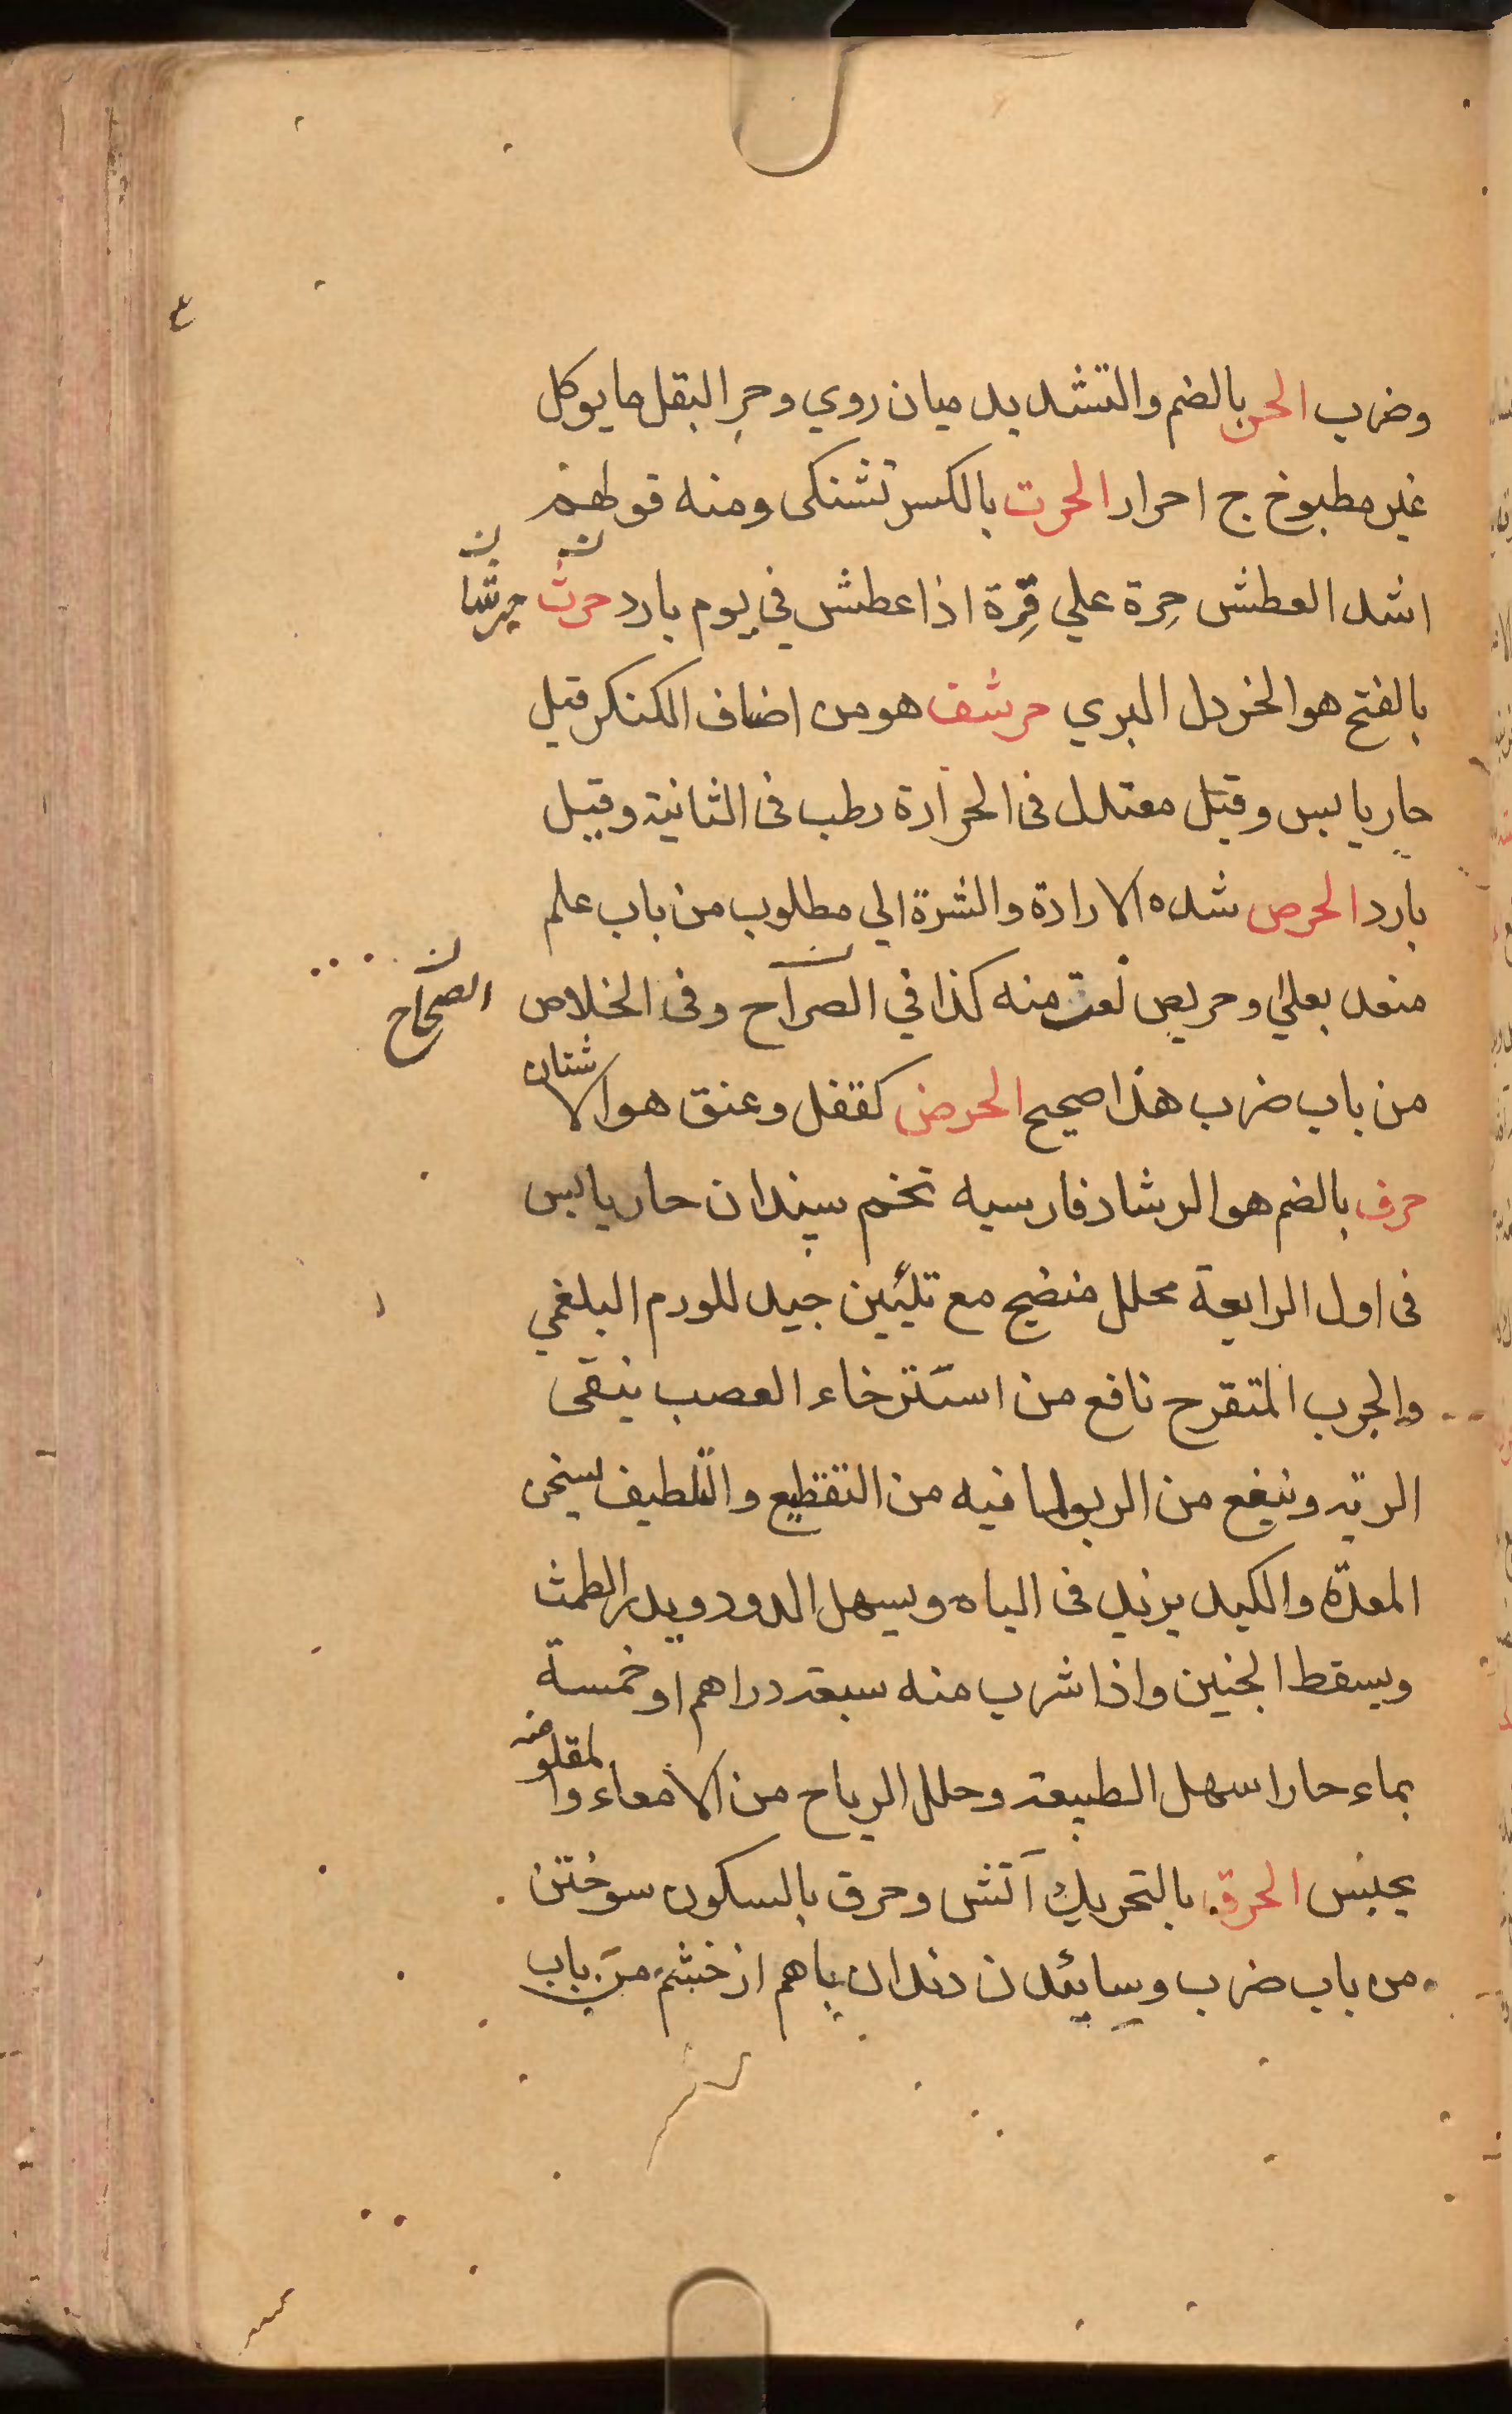 وضرب الحر بالضم والتشديد ميان روي وحر البقل ما يوكل
غير مطبوخ ج احرار الحرت بالكسر تشنكى ومنه قولهم
اشد العطش حِرة علي قِرة اذا عطش في يوم بارد حرث حرشا
بالفتح هو الخردل البري حرشف هو من اصناف الكنكر قيل
حار يابس وقيل معتدل فى الحرارة رطب فى الثانية وقيل
بارد الحرص شده الارادة والشرة الي مطلوب من باب علم
منعد بعلي وحريص نعت منه كذا في الصراح وفى الخلاص
الصحاح
من باب ضرب هذا صحيح الحرض كقفل وعنق هو الاشنان
حرف بالضم هو الرشاد فارسيه تخم سپندان حار يابس
فى اول الرابعة محلل منضج مع تليين جيد للورم البلغمي
والجرب المتقرح نافع من استرخاء العصب ينقى
الريه وينفع من الربو لما فيه من التقطيع والتلطيف يسخن
المعدة والكبد يزيد فى الباه ويسهل الدود ويدر الطمث
ويسقط الجنين واذا شرب منه سبعه دراهم او خمسة
بماء حار اسهل الطبيعه وحلل الرياح من الامعاء والمقلو منه
يحبس الحرق بالتحريك آتش وحرق بالسكون سوختن
من باب ضرب وسائيدن دندان باهم از خشم من باب